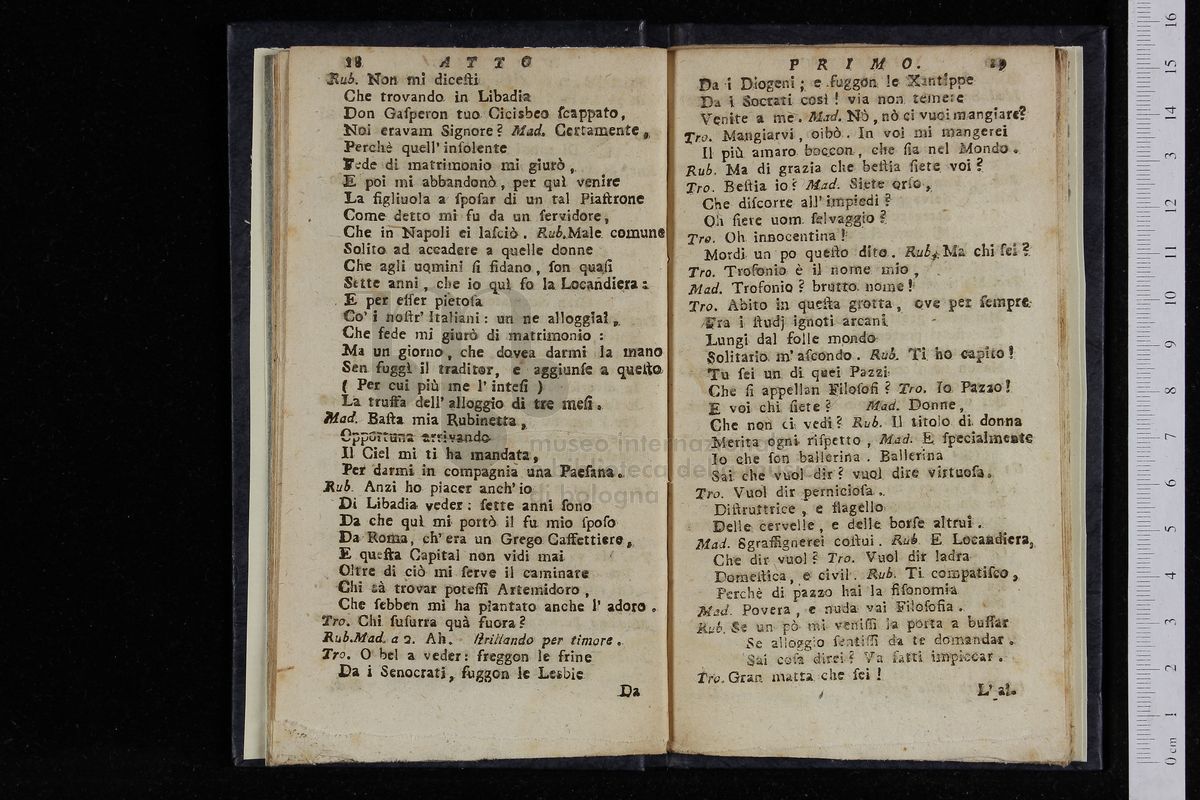 18 ATTO
Rub. Non mi diceſti
Che trovando in Libadia
Don Gaſperon tuo Cicisbeo ſcappato,
Noi eravam Signore? Mad. Certamente,
Perchè quell' inſolente
Fede di matrimonio mi giurò,
E poi mi abbandonò, per quì venire
La figliuola a ſpoſar di un tal Piaſtrone
Come detto mi fu da un ſervidore,
Che in Napoli ei laſciò. Rub. Male comune
Solito ad accadere a quelle donne
Che agli uomini ſi fidano, ſon quaſi
Sette anni, che io quì fo la Locandiera:
E per eſſer pietoſa
Co' i noſtr' Italiani: un ne alloggiai,
Che fede mi giurò di matrimonio:
Ma un giorno, che dovea darmi la mano
Sen fuggì il traditor, e aggiunſe a queſto
( Per cui più me l' inteſi )
La truffa dell' alloggio di tre meſi.
Mad. Baſta mia Rubinetta,
Opportuna arrivando
Il Ciel mi ti ha mandata,
Per darmi in compagnia una Paeſana.
Rub. Anzi ho piacer anch' io
Di Libadia veder: ſette anni ſono
Da che quì mi portò il fu mio ſpoſo
Da Roma, ch' era un Grego Caffettiere,
E queſta Capital non vidi mai
Oltre di ciò mi ſerve il caminare
Chi sà trovar poteſſi Artemidoro,
Che ſebben mi ha piantato anche l' adoro.
Tro. Chi ſuſurra quà fuora?
Rub. Mad. a 2. Ah. ſtrillando per timore.
Tro. O bel a veder: freggon le frine
Da i Senocrati, fuggon le Lesbie
Da
PRIMO. 19
Da i Diogeni; e fuggon le Xantippe
Da i Socrati così! via non temete
Venite a me. Mad. Nò, nò ci vuoi mangiare?
Tro. Mangiarvi, oibò. In voi mi mangerei
Il più amaro boccon, che ſia nel Mondo.
Rub. Ma di grazia che beſtia ſiete voi?
Tro. Beſtia io? Mad. Siete orſo,
Che diſcorre all' impiedi?
Oh ſiete uom ſelvaggio?
Tro. Oh innocentina!
Mordi un po queſto dito. Rub. Ma chi ſei?
Tro. Trofonio è il nome mio,
Mad. Trofonio? brutto nome!
Tro. Abito in queſta grotta, ove per ſempre
Fra i ſtudj ignoti arcani
Lungi dal folle mondo
Solitario m' aſcondo. Rub. Ti ho capito!
Tu ſei un di quei Pazzi
Che ſi appellan Filoſofi? Tro. Io Pazzo!
E voi chi ſiete? Mad. Donne,
Che non ci vedi? Rub. Il titolo di donna
Merita ogni riſpetto, Mad. E ſpecialmente
Io che ſon ballerina. Ballerina
Sai che vuol dir? vuol dire virtuoſa.
Tro. Vuol dir pernicioſa.
Diſtruttrice, e flagello
Delle cervelle, e delle borſe altrui.
Mad. Sgraffignerei coſtui. Rub. E Locandiera,
Che dir vuol? Tro. Vuol dir ladra
Domeſtica, e civil. Rub. Ti compatiſco,
Perchè di pazzo hai la fiſonomia
Mad. Povera, e nuda vai Filoſofia.
Rub. Se un pò mi veniſſi la porta a buſſar
Se alloggio ſentiſſi da te domandar.
Sai coſa direi? Va fatti impiccar.
Tro. Gran matta che ſei!
L' al-
museo internazionale
biblioteca della musica
di bologna
0 cm 1 2 3 4 5 6 7 8 9 10 11 12 13 14 15 16